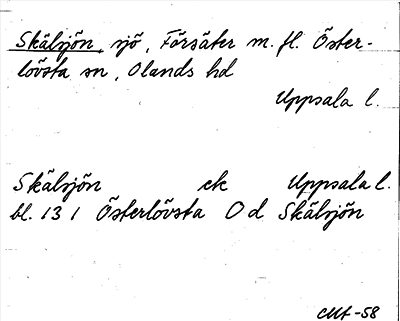 Skälsjön, sjö, Försäter m. fl. Öster-
lövsta sn, Olands hd
Uppsala l.
Skälsjön ek Uppsala l.
bl. 131 Österlövsta O d Skälsjön
-58